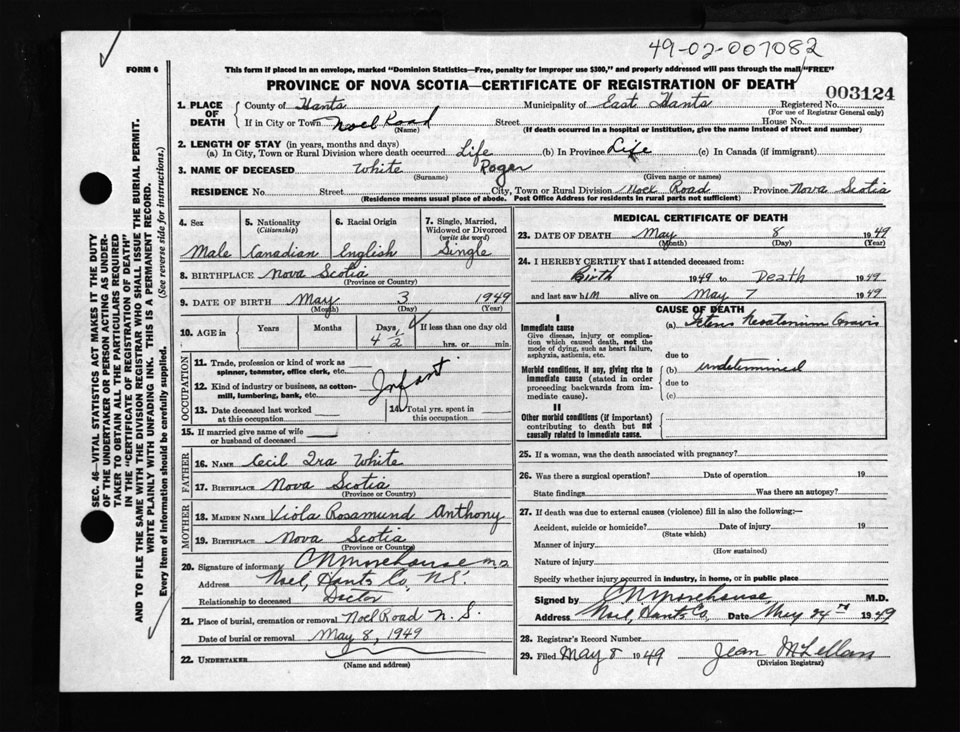 49-02-007082
FORM 6
This form if placed in an envelope, marked "Dominion Statistics—Free, penalty for improper use $300," and properly addressed will pass through the mail "FREE"
PROVINCE OF NOVA SCOTIA—CERTIFICATE OF REGISTRATION OF DEATH
003124
1. PLACE OF DEATH
County of Hants Municipality of East Hants Registered No.
(For use of Registrar General only)
If in City or Town Noel Road Street House No.
(Name) (If death occurred in a hospital or institution, give the name instead of street and number)
2. LENGTH OF STAY (in years, months and days)
(a) In City, Town or Rural Division where death occurred Life (b) In Province Life (c) In Canada (if immigrant)
3. NAME OF DECEASED White Roger
(Surname) (Given name or names)
RESIDENCE No. Street City, Town or Rural Division Noel Road Province Nova Scotia
(Residence means usual place of abode. Post Office Address for residents in rural parts not sufficient)
SEC. 46—VITAL STATISTICS ACT MAKES IT THE DUTY
OF THE UNDERTAKER OR PERSON ACTING AS UNDER-
TAKER TO OBTAIN ALL THE PARTICULARS REQUIRED
IN THE "CERTIFICATE OF REGISTRATION OF DEATH"
AND TO FILE THE SAME WITH THE DIVISION REGISTRAR WHO SHALL ISSUE THE BURIAL PERMIT.
WRITE PLAINLY WITH UNFADING INK. THIS IS A PERMANENT RECORD.
Every item of information should be carefully supplied. (See reverse side for instructions.)
4. Sex
Male
5. Nationality
(Citizenship)
Canadian
6. Racial Origin
English
7. Single, Married,
Widowed or Divorced
(write the word)
Single
8. BIRTHPLACE Nova Scotia
(Province or Country)
9. DATE OF BIRTH May 3 1949
(Month) (Day) (Year)
10. AGE in Years Months Days If less than one day old
4 1/2 hrs. or min.
OCCUPATION
11. Trade, profession or kind of work as
spinner, teamster, office clerk, etc. Infant
12. Kind of industry or business, as cotton-
mill, lumbering, bank, etc.
13. Date deceased last worked
at this occupation
14. Total yrs. spent in
this occupation
15. If married give name of wife
or husband of deceased
FATHER
16. NAME Cecil Ira White
17. BIRTHPLACE Nova Scotia
(Province or Country)
MOTHER
18. MAIDEN NAME Viola Rosamund Anthony
19. BIRTHPLACE Nova Scotia
(Province or Country)
20. Signature of informant Morehouse M.D.
Address Noel, Hants Co, N.S.
Relationship to deceased Doctor
21. Place of burial, cremation or removal Noel Road N.S
Date of burial or removal May 8, 1949
22. UNDERTAKER
(Name and address)
MEDICAL CERTIFICATE OF DEATH
23. DATE OF DEATH May 8 1949
(Month) (Day) (Year)
24. I HEREBY CERTIFY that I attended deceased from:
Birth 1949 to Death 1949
and last saw him alive on May 7 1949
CAUSE OF DEATH
I
Immediate cause
Give disease, injury or complica-
tion which caused death, not the
mode of dying, such as heart failure,
asphyxia, asthenia, etc.
(a) Gravis
due to
Morbid conditions, if any, giving rise to
immediate cause (stated in order
proceeding backwards from im-
mediate cause).
(b) undetermined
due to
(c)
II
Other morbid conditions (if important)
contributing to death but not
causally related to immediate cause.
25. If a woman, was the death associated with pregnancy?
26. Was there a surgical operation? Date of operation 19
State findings Was there an autopsy?
27. If death was due to external causes (violence) fill in also the following:—
Accident, suicide or homicide? Date of injury 19
(State which)
Manner of injury
(How sustained)
Nature of injury
Specify whether injury occurred in industry, in home, or in public place
Signed by Morehouse M.D.
Address Noel, Hants Co. Date May 24 1949
28. Registrar's Record Number
29. Filed May 8 1949 Jean McLellan
(Division Registrar)